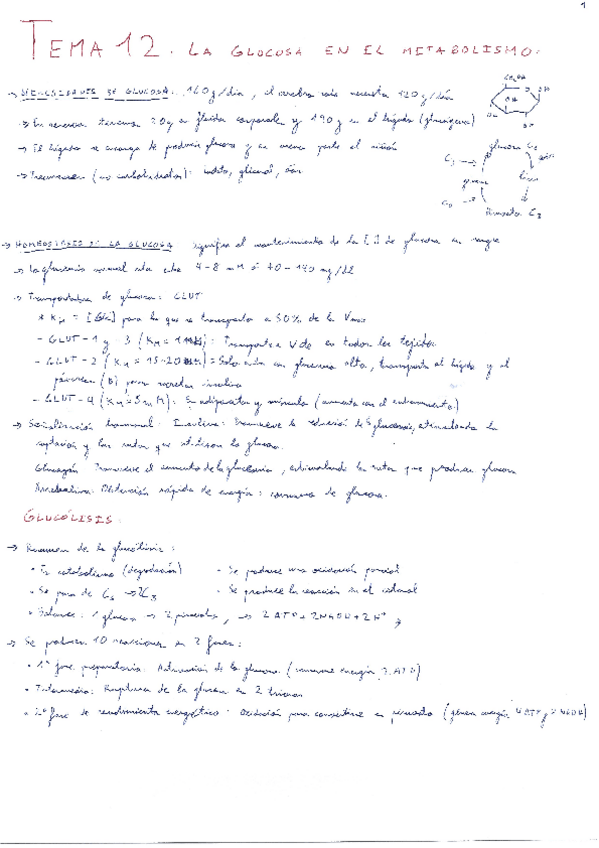 1
TEMA 12. LA GLUCOSA EN EL METABOLISMO.
→ NECESIDADES DE GLUCOSA: 160 g/día, el cerebro solo necesita 120 g/día
→ En reserva tenemos 20g en fluidos corporales y 190 g en el hígado (glucógeno)
→ El hígado se encarga de producir glucosa y en menor parte el riñón
→ Precursores (no carbohidratos): lactato, glicerol,
CH₂OH
OH
OH
glucosa C₆
C₃ →
Piruvato C₃
→ HOMEOSTASIS DE LA GLUCOSA significa el mantenimiento de la [ ] de glucosa en sangre
→ La glucemia normal está entre 4-8 mM ó 70-140 mg/dL
→ Transportadores de glucosa: GLUT
* KM = [Glc] para la que se transporta a 50% de la Vmax
- GLUT-1 y -3 (KM = 1 mM): Transporte en todos los tejidos
- GLUT-2 (KM = 15-20 mM) = Solo actúa con glucemia alta, transporta al hígado y el
páncreas (β) para secretar insulina
- GLUT-4 (KM = 5 mM): En adipocitos y músculo (aumenta con el entrenamiento)
→ Señalización hormonal: Insulina: Promueve la reducción de glucemia, estimulando la
captación y las rutas que utilizan la glucosa.
Glucagón: Promueve el aumento de la glucemia, estimulando la rutas que producen glucosa
Adrenalina: Obtención rápida de energía: consumo de glucosa.
GLUCÓLISIS:
→ Resumen de la glucólisis:
• Es catabolismo (degradación) • Se produce una oxidación parcial
• Se pasa de C₆ → 2C₃ • Se produce la reacción en el citosol
• Balance: 1 glucosa → 2 piruvatos, → 2 ATP + 2NADH + 2H⁺
→ Se producen 10 reacciones en 2 fases:
• 1ª fase preparatoria: Activación de la glucosa (consume energía 2 ATP)
• Intermedia: Ruptura de la glucosa en 2 triosas
• 2ª fase de rendimiento energético: Oxidación para convertirse en piruvato (genera energía 4 ATP y 2 NADH)